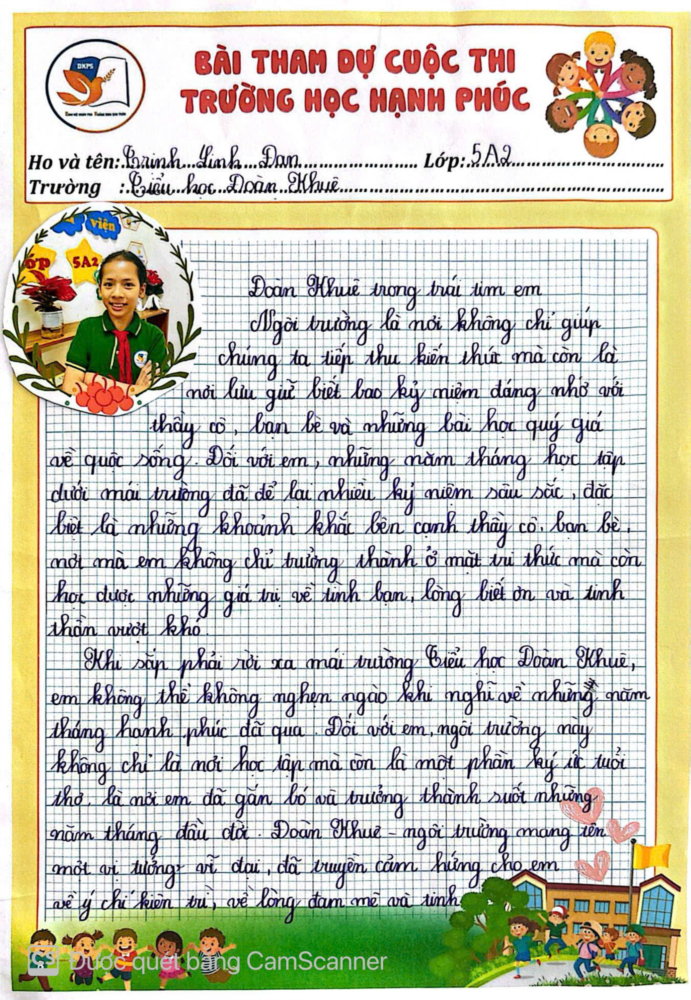 DKPS
BÀI THAM DỰ CUỘC THI
TRƯỜNG HỌC HẠNH PHÚC
Họ và tên: Trịnh Linh Đan Lớp: 5A2
Trường : Tiểu học Đoàn Khuê
Viện
ớp 5A2
Đoàn Khuê trong trái tim em
Ngôi trường là nơi không chỉ giúp
chúng ta tiếp thu kiến thức mà còn là
nơi lưu giữ biết bao kỷ niệm đáng nhớ với
thầy cô, bạn bè và những bài học quý giá
về cuộc sống. Đối với em, những năm tháng học tập
dưới mái trường đã để lại nhiều kỷ niệm sâu sắc, đặc
biệt là những khoảnh khắc bên cạnh thầy cô, bạn bè,
nơi mà em không chỉ trưởng thành ở mặt tri thức mà còn
học được những giá trị về tình bạn, lòng biết ơn và tinh
thần vượt khó.
Khi sắp phải rời xa mái trường Tiểu học Đoàn Khuê,
em không thể không nghẹn ngào khi nghĩ về những năm
tháng hạnh phúc đã qua. Đối với em, ngôi trường này
không chỉ là nơi học tập mà còn là một phần ký ức tuổi
thơ, là nơi em đã gắn bó và trưởng thành suốt những
năm tháng đầu đời. Đoàn Khuê - ngôi trường mang tên
một vị tướng vĩ đại, đã truyền cảm hứng cho em
về ý chí kiên trì, về lòng đam mê và tinh
CS Được quét bằng CamScanner